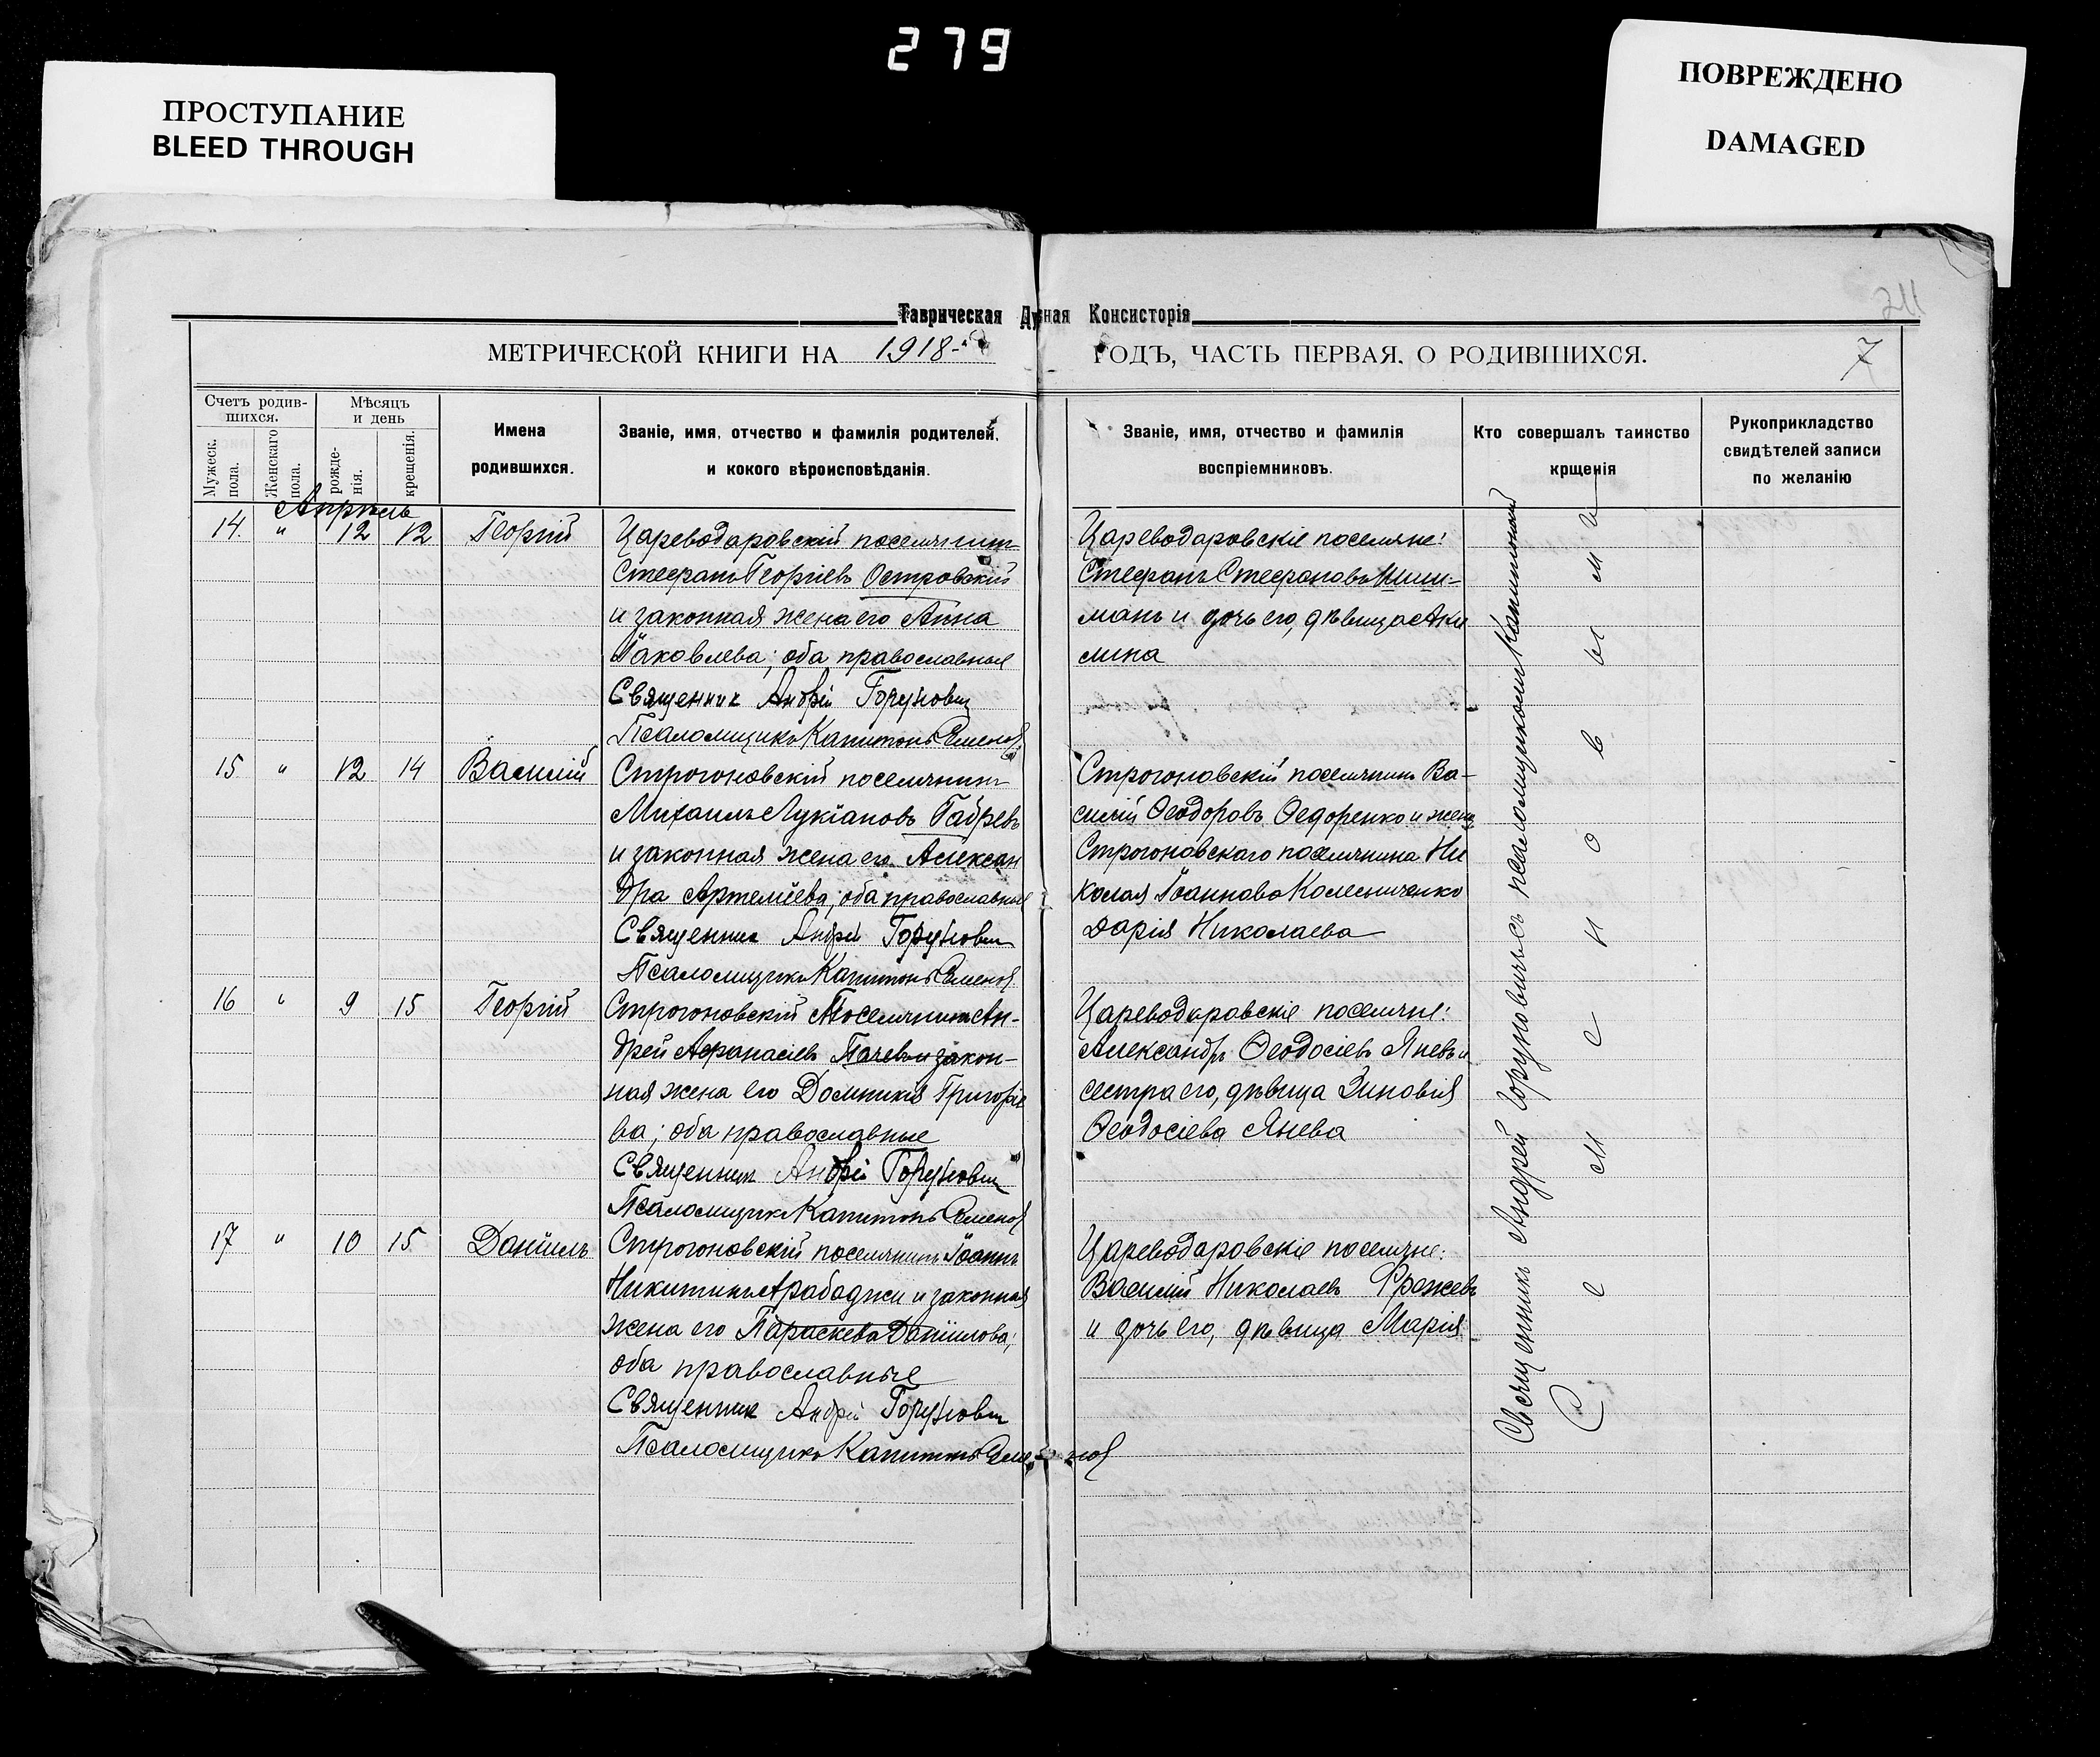 279
ПРОСТУПАНИЕ
BLEED THROUGH
ПОВРЕЖДЕНО
DAMAGED
Таврическая Духная Консисторія
МЕТРИЧЕСКОЙ КНИГИ НА 1918-й ГОДЪ, ЧАСТЬ ПЕРВАЯ, О РОДИВШИХСЯ.
7
Счетъ родив-
шихся.
Мужеск. пола.
Женскаго пола.
Мѣсяцъ
и день
рожде-
нія.
крещенія.
Имена
родившихся.
Званіе, имя, отчество и фамилія родителей,
и кокого вѣроисповѣданія.
Званіе, имя, отчество и фамилія
воспріемниковъ.
Кто совершалъ таинство
крщенія
Рукоприкладство
свидѣтелей записи
по желанію
Апрѣль
14. " 12 12 Георгій
Цареводаровскій поселянинъ
Стефанъ Георгіевъ Островскій
и законная жена его Анна
Іаковлева; оба православные
Священник Андрей Горунович
Псаломщикъ Капитонъ
Цареводаровскіе поселяне:
Стефанъ Стефановъ Шиш-
манъ и дочь его, дѣвица Аки
лина
15. " 12 14 Василій
Строгоновскій поселянинъ
Михаилъ Лукіановъ
и законная жена его Алексан
дра Артеміева; оба православные
Священник Андрей Горунович
Псаломщикъ Капитонъ
Строгоновскій поселянинъ Ва-
силій Ѳеодоровъ Ѳедоренко и жена
Строгоновскаго поселянина Ни
колая Іоаннова Колесниченко
Дарія Николаева
16 " 9 15 Георгій
Строгоновскій Поселянинъ Ан-
дрей Афанасіевъ Пачевъ и закон-
ная жена его Домникія Григоріе
ва; оба православные
Священник Андрей Горунович
Псаломщикъ Капитонъ
Цареводаровскіе поселяне:
Александръ Ѳеодосіевъ Яневъ и
сестра его, дѣвица Зиновія
Ѳеодосіева Янева
17 " 10 15 Даніилъ
Строгоновскій поселянинъ Іоаннъ
Никитинъ Арабаджи и законная
жена его Параскева Даніилова;
оба православные
Священник Андрей Горунович
Псаломщикъ Капитонъ
Цареводаровскіе поселяне:
Василій Николаевъ
и дочь его, дѣвица Марія
Священникъ Андрей Горуновичъ съ псаломщикомъ Капитономъ
Семеновымъ